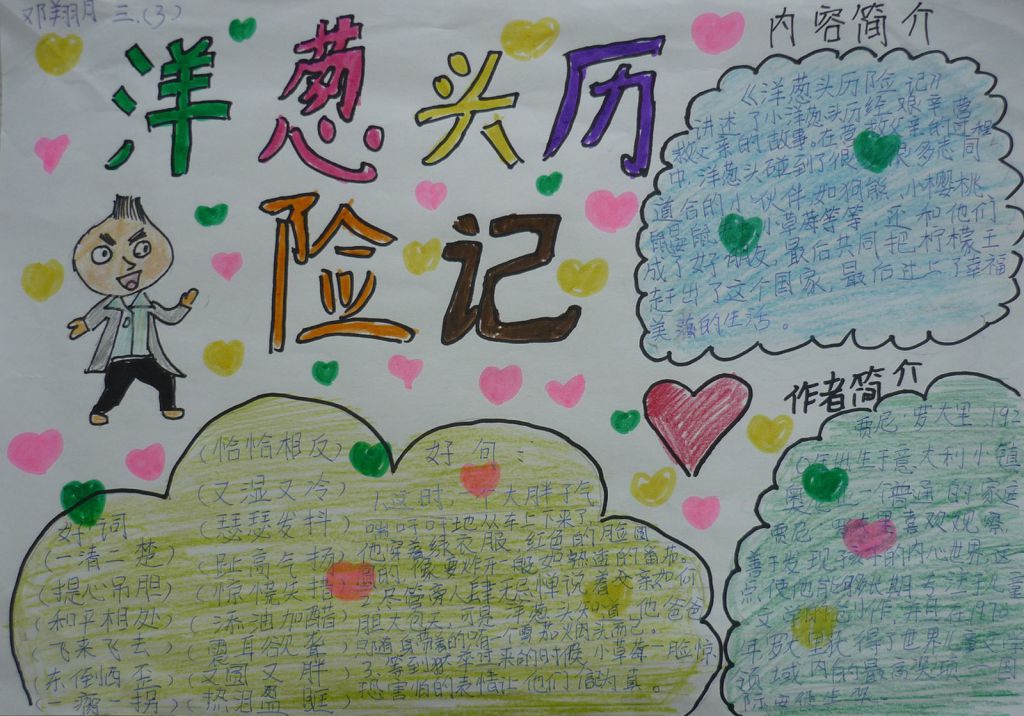 邓翔月 三.(3)
洋葱头历
险记
内容简介
《洋葱头历险记》
讲述了小洋葱头历经艰辛营
救父亲的故事。在营救父亲的过程
中,洋葱头碰到了很多志同
道合的小伙伴,如狗熊、小樱桃
鼹鼠、小草莓等等,还和他们
成了好朋友,最后共同把柠檬王
赶出了这个国家,最后过上了幸福
美满的生活。
作者简介
贾尼·罗大里,192
年出生于意大利小镇
奥 一个普通的家庭
贾尼 罗大里喜欢观察
善于发现孩子的内心世界,这
点使他能够长期专注于儿童
文学 创作,并且在197
年罗大里获得了世界儿童文学
领域内的最高奖项——国
际安徒生奖
好词
(一清二楚)
(提心吊胆)
(和平相处)
(飞来飞去)
(东倒西歪)
(一瘸一拐)
(恰恰相反)
(又湿又冷)
(瑟瑟发抖)
(趾高气扬)
(惊慌失措)
(添油加醋)
(震耳欲聋)
(又圆又胖)
(热泪盈眶)
好句:
1.这时,一个大胖子气
喘吁吁地从车上下来了,
他穿着绿衣服,红色的脸圆
圆的,像要炸开一般,如熟透的番茄。
2.尽管旁人肆无忌惮说着父亲如何
胆大包天,可是,洋葱头知道,他爸爸
3.等到 来的时候,小草莓一脸惊
恐害怕的表情让他们信以为真。